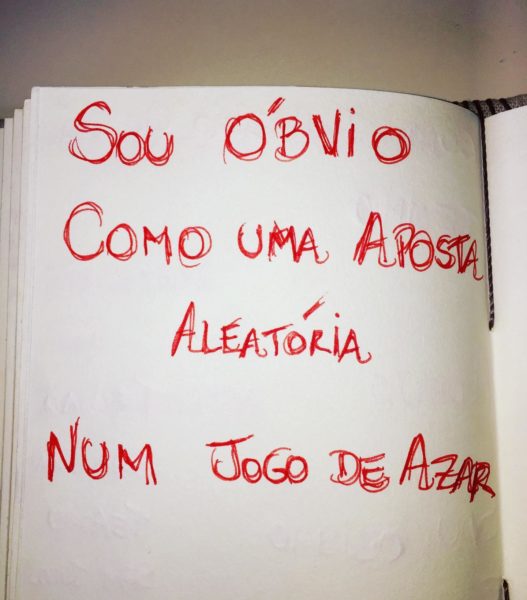 SOU ÓBViO
COMO UMA APOSTA
ALEATÓRiA
NUM JOGO DE AZAR